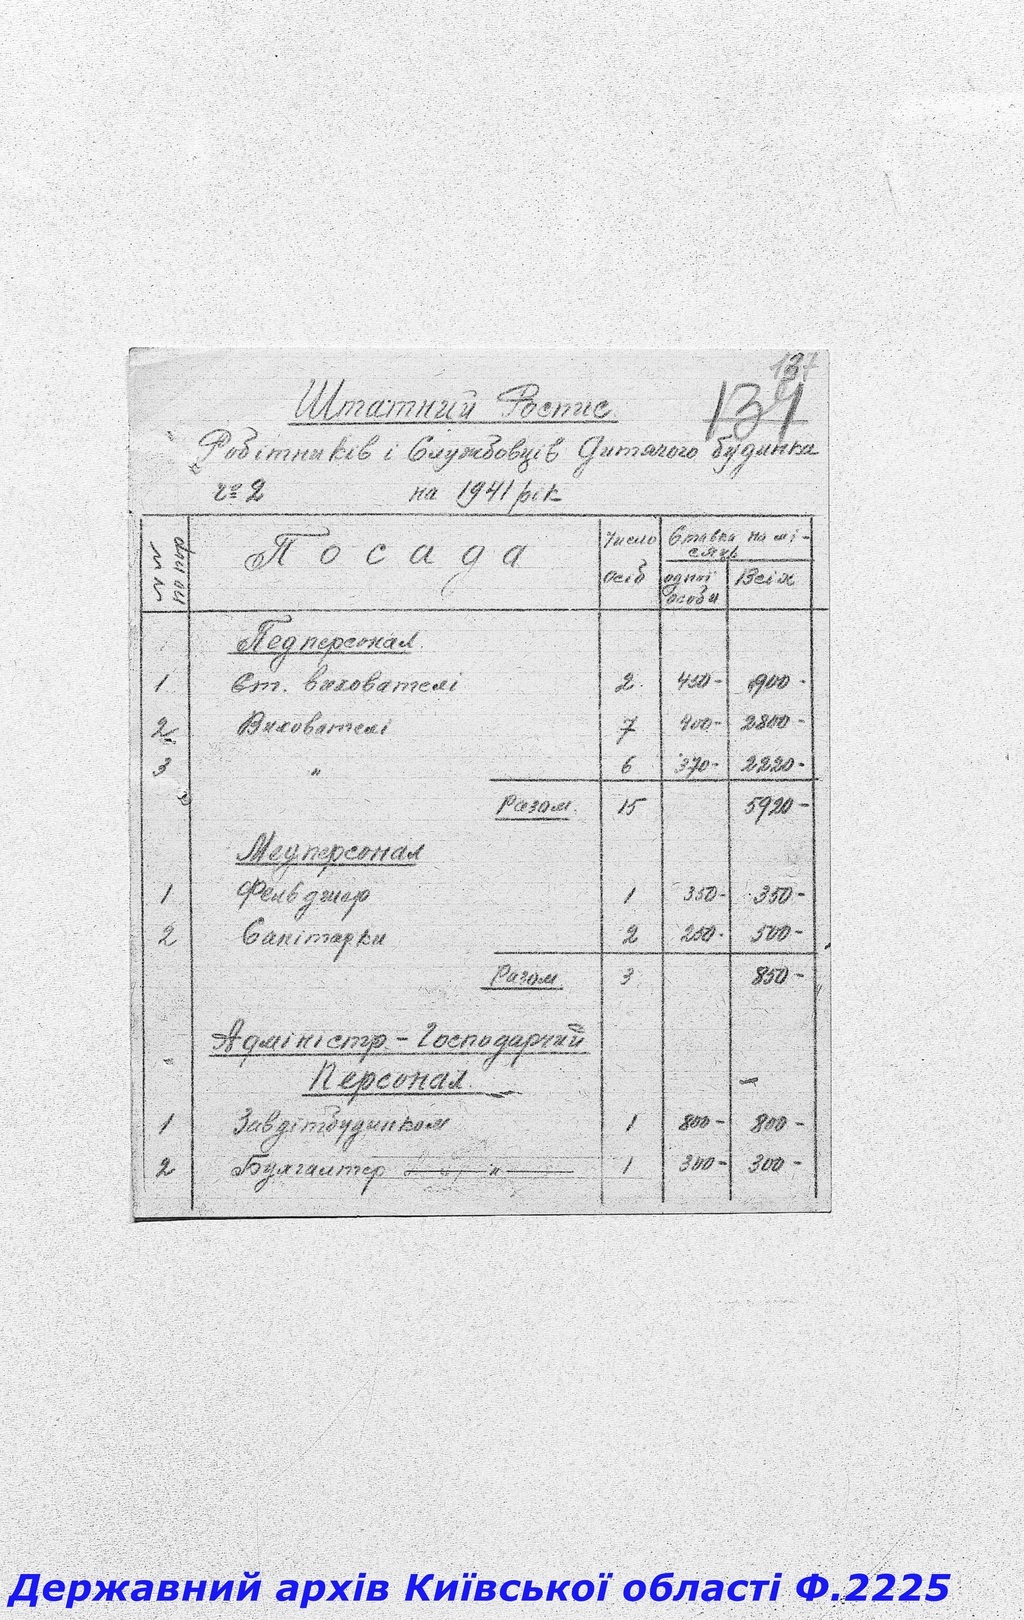 137
134
Штатний Розпис
Робітників і Службовців Дитячого будинка
№ 2 на 1941 рік
№№ по пор. Посада Число осіб Ставка на місяць
одної особи Всіх
Педперсонал
1 Ст. вихователі 2 450- 900-
2 Вихователі 7 400- 2800-
3 " 6 370- 2220-
Разом 15 5920-
Медперсонал
1 Фельдшер 1 350- 350-
2 Санітарки 2 250- 500-
Разом 3 850-
Адміністр-Господарчий
Персонал
1 Завдітбудинком 1 800- 800-
2 Бухгалтер " 1 300- 300-
Державний архів Київської області Ф.2225